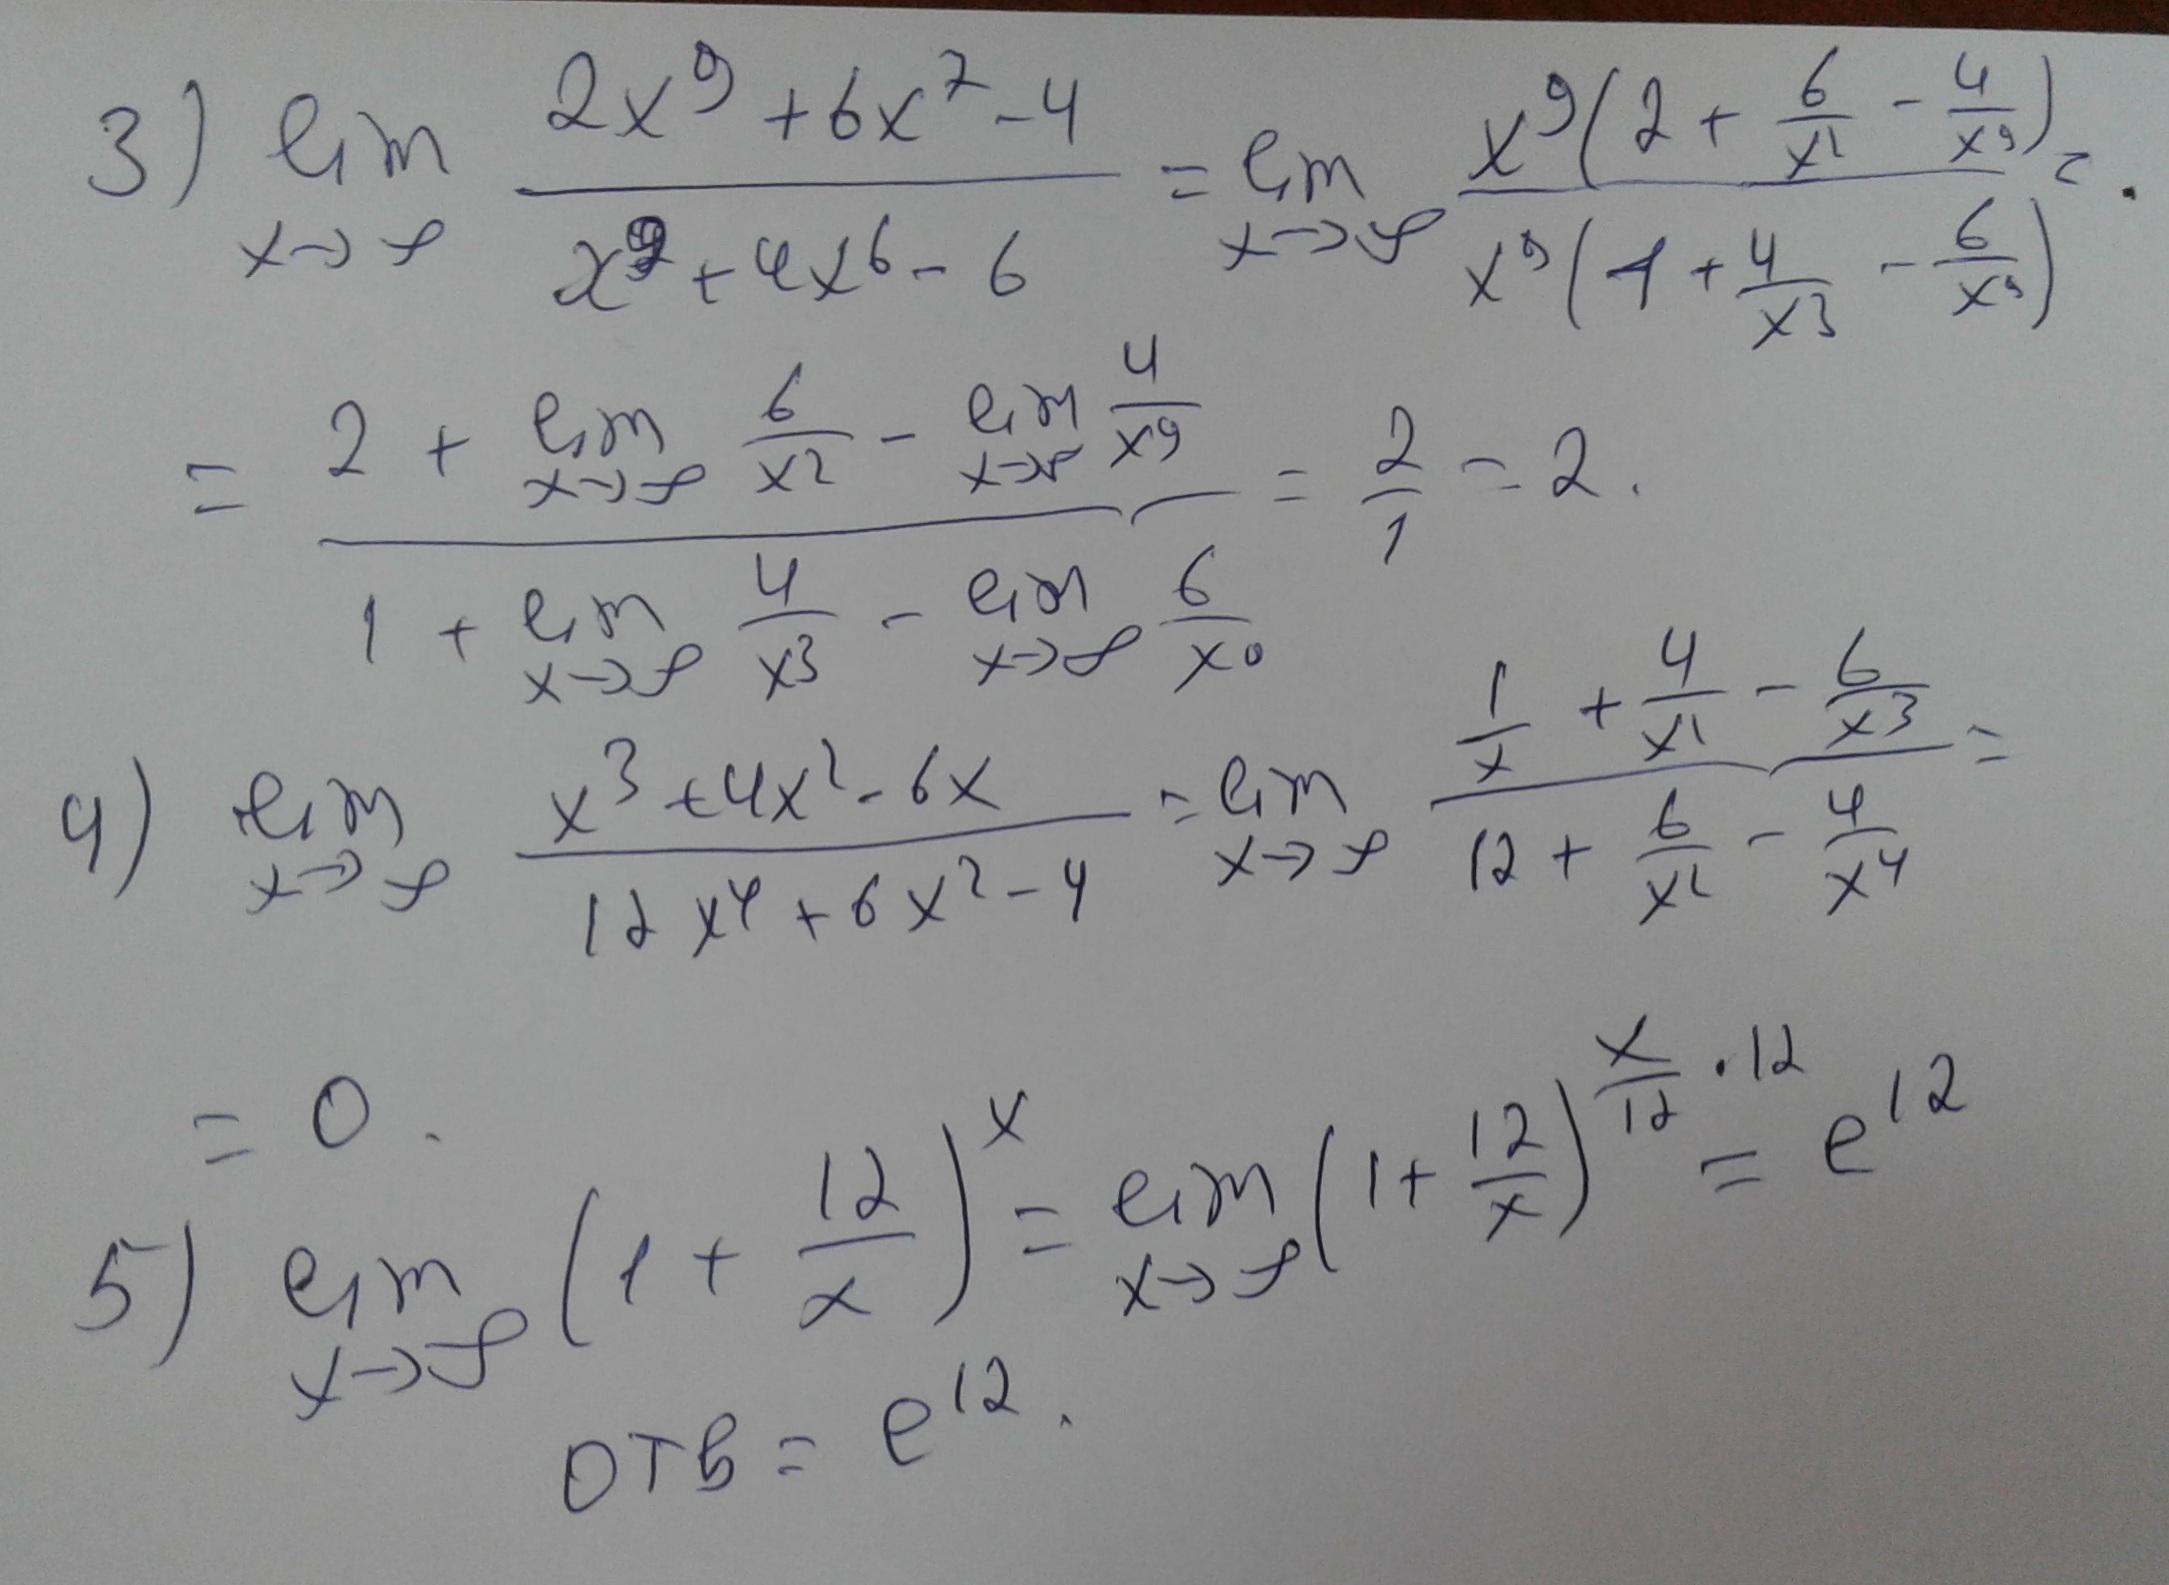 3) lim x→∞ (2x⁹ + 6x⁷ - 4)/(x⁹ + 4x⁶ - 6) = lim x→∞ x⁹(2 + 6/x² - 4/x⁹)/x⁹(1 + 4/x³ - 6/x⁹) =
= (2 + lim x→∞ 6/x² - lim x→∞ 4/x⁹)/(1 + lim x→∞ 4/x³ - lim x→∞ 6/x⁹) = 2/1 = 2.
4) lim x→∞ (x³ + 4x² - 6x)/(12x⁴ + 6x² - 4) = lim x→∞ (1/x + 4/x² - 6/x³)/(12 + 6/x² - 4/x⁴) =
= 0.
5) lim x→∞ (1 + 12/x)^x = lim x→∞ (1 + 12/x)^(x/12 · 12) = e¹²
ОТВ = e¹².